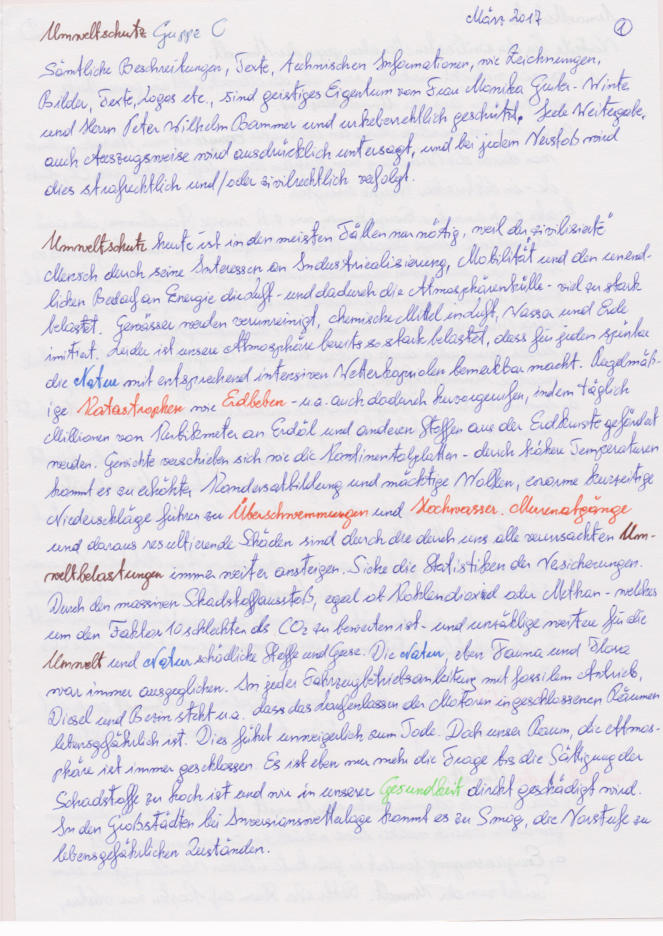 März 2017
1
Umweltschutz Guppe C
Sämtliche Beschreibungen, Texte, technischen Informationen, wie Zeichnungen,
Bilder, Texte, Logos etc., sind geistiges Eigentum von Frau Monika Guter-Winte
und Herrn Peter Wilhelm Bammer und urheberechtlich geschützt. Jede Weitergabe,
auch Auszugsweise wird ausdrücklich untersagt, und bei jedem Verstoß wird
dies strafrechtlich und/oder zivilrechtlich verfolgt.
Umweltschutz heute ist in den meisten Fällen nur nötig, weil der "zivilisierte"
Mensch durch seine Interessen an Industriealisierung, Mobilität und den unend-
lichen Bedarf an Energie die Luft - und dadurch die Atmosphärenhülle - viel zu stark
belastet. Gewässer werden verunreinigt, chemische Mittel in Luft, Wasser und Erde
imitiert. Leider ist unsere Atmosphäre bereits so stark belastet, dass für jeden spürbar
die Natur mit entsprechend intensiven Wetterkapriolen bemerkbar macht. Regelmäß-
ige Katastrophen wie Erdbeben - u.a. auch dadurch hervorgerufen, indem täglich
Millionen von Kubikmeter an Erdöl und anderen Stoffen aus der Erdkruste gefördert
werden. Gewichte verschieben sich wie die Kontinentalplatten - durch höhere Temperaturen
kommt es zu erhöhter Kondensatbildung und mächtige Wolken, enorme kurzzeitige
Niederschläge führen zu Überschwemmungen und Hochwasser. Murenabgänge
und daraus resultierende Schäden sind durch die durch uns alle verursachten Um-
weltbelastungen immer weiter ansteigen. Siehe die Statistiken der Versicherungen.
Durch den massiven Schadstoffausstoß, egal ob Kohlendioxied oder Methan - welches
um den Faktor 10 schlechter als CO2 zu bewerten ist - und unzählige weitere für die
Umwelt und Natur schädliche Stoffe und Gase. Die Natur, eben Fauna und Flora
war immer ausgeglichen. In jeder Fahrzeugbetriebsanleitung mit fossilem Antrieb,
Diesel und Benzin steht u.a. dass das Laufenlassen der Motoren in geschlossenen Räumen
lebensgefährlich ist. Dies führt unweigerlich zum Tode. Doch unser Raum, die Atmos-
phäre ist immer geschlossen. Es ist eben nur mehr die Frage bis die Sättigung der
Schadstoffe zu hoch ist und wir in unserer Gesundheit direkt geschädigt wird.
In den Großstädten bei Inversionswetterlage kommt es zu Smog, die Vorstufe zu
lebensgefährlichen Zuständen.